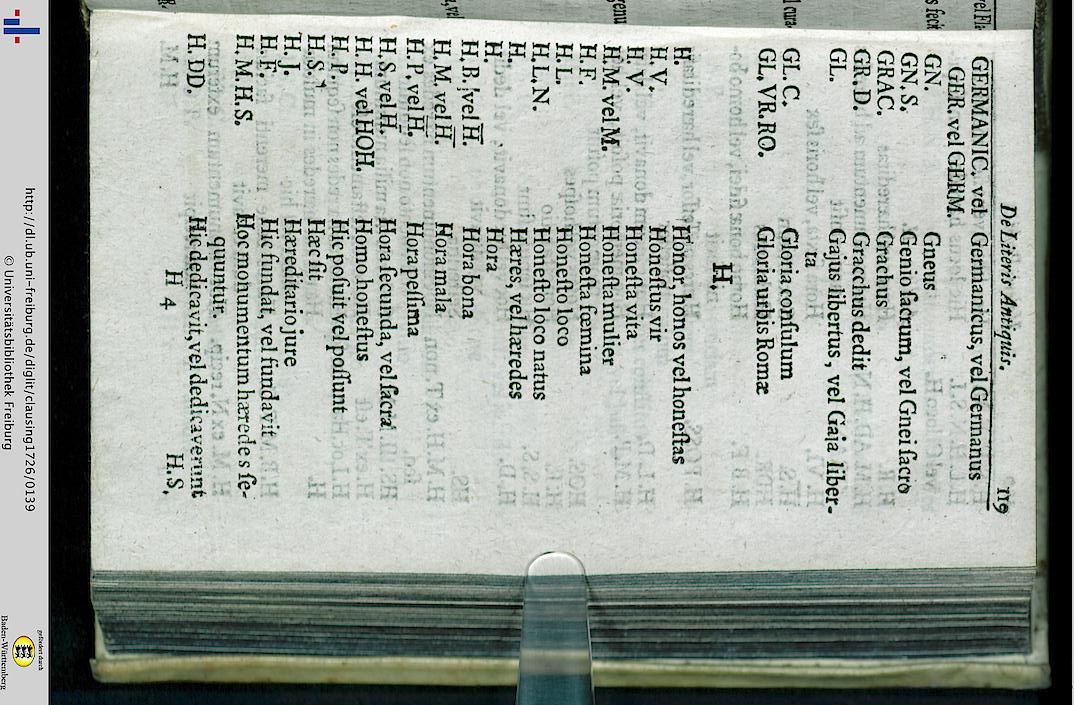 De Literis Antiquis. 119
GERMANIC. vel Germanicus, vel Germanus
GER. vel GERM.
GN. Gneus
GN. S. Genio ſacrum, vel Gnei ſacro
GRAC. Grachus
GR. D. Gracchus dedit
GL. Gajus libertus, vel Gaja liber-
ta
GL. C. Gloria conſulum
GL. VR. RO. Gloria urbis Romæ
H.
H. Honor, honos vel honeſtas
H. V. Honeſtus vir
H. V. Honeſta vita
H. M. vel M. Honeſta mulier
H. F. Honeſta fœmina
H. L. Honeſto loco
H. L. N. Honeſto loco natus
H. Hæres, vel hæredes
H. Hora
H. B. vel H. Hora bona
H. M. vel H. Hora mala
H. P. vel H. Hora peſſima
H. S. vel H. Hora ſecunda, vel ſacra
H. H. vel HOH. Homo honeſtus
H. P. Hic poſuit vel poſſunt
H. S. Hæc ſit
H. J. Hæreditario jure
H. F. Hic fundat, vel fundavit
H. M. H. S. Hoc monumentum hærede s ſe-
quuntur.
H. DD. Hic dedicavit, vel dedicaverunt
H 4 H. S.
http://dl.ub.uni-freiburg.de/diglit/clausing1726/0139
© Universitätsbibliothek Freiburg
gefördert durch
Baden-Württemberg